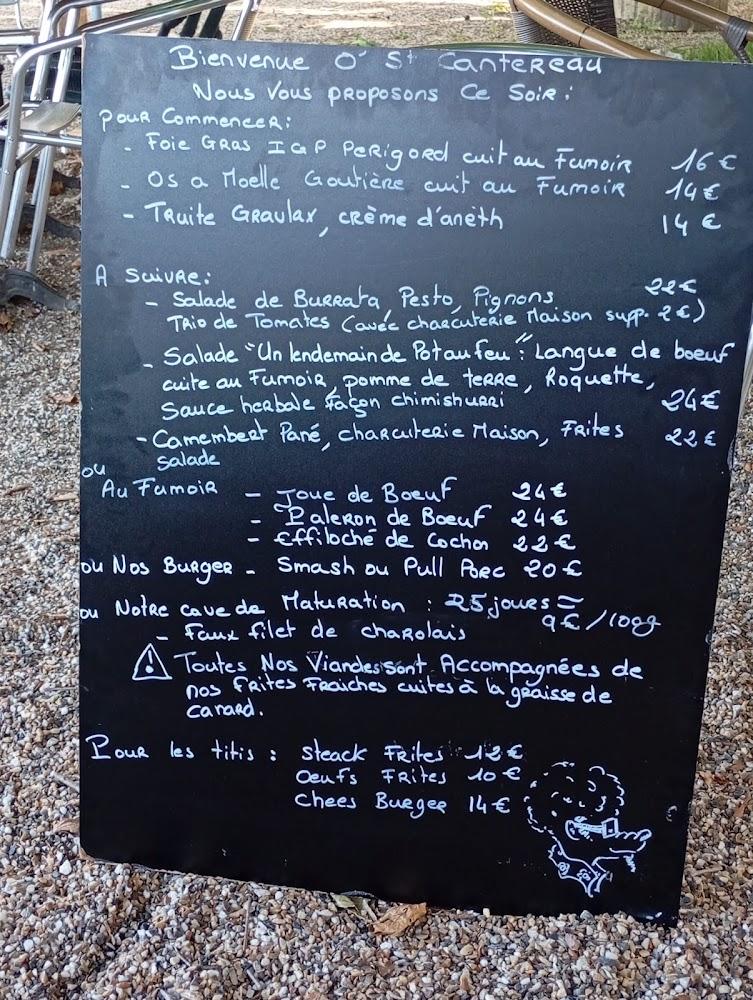 Bienvenue O' St Cantereau
Nous Vous proposons Ce Soir :
pour Commencer :
- Foie Gras IGP Perigord cuit au Fumoir 16 €
- Os a Moelle Goutière cuit au Fumoir 14 €
- Truite Gravlax, crème d'anèth 14 €
A Suivre :
- Salade de Burrata, Pesto, Pignons 22 €
Trio de Tomates (avec charcuterie Maison supp. 2 €)
- Salade "Un lendemain de Pot au feu" : Langue de boeuf
cuite au Fumoir, pomme de terre, Roquette,
Sauce herbale façon chimishurri 24 €
- Camembert Pané, charcuterie Maison, Frites 22 €
salade
ou
Au Fumoir - Joue de Boeuf 24 €
- Paleron de Boeuf 24 €
- Effiloché de Cochon 22 €
ou Nos Burger - Smash ou Pull Porc 20 €
ou Notre cave de Maturation : 25 jours =
9 € / 100g
- Faux filet de charolais
⚠ Toutes Nos Viandes sont Accompagnées de
nos frites Fraiches cuites à la graisse de
canard.
Pour les titis : Steack Frites 12 €
Oeufs Frites 10 €
Chees Burger 14 €